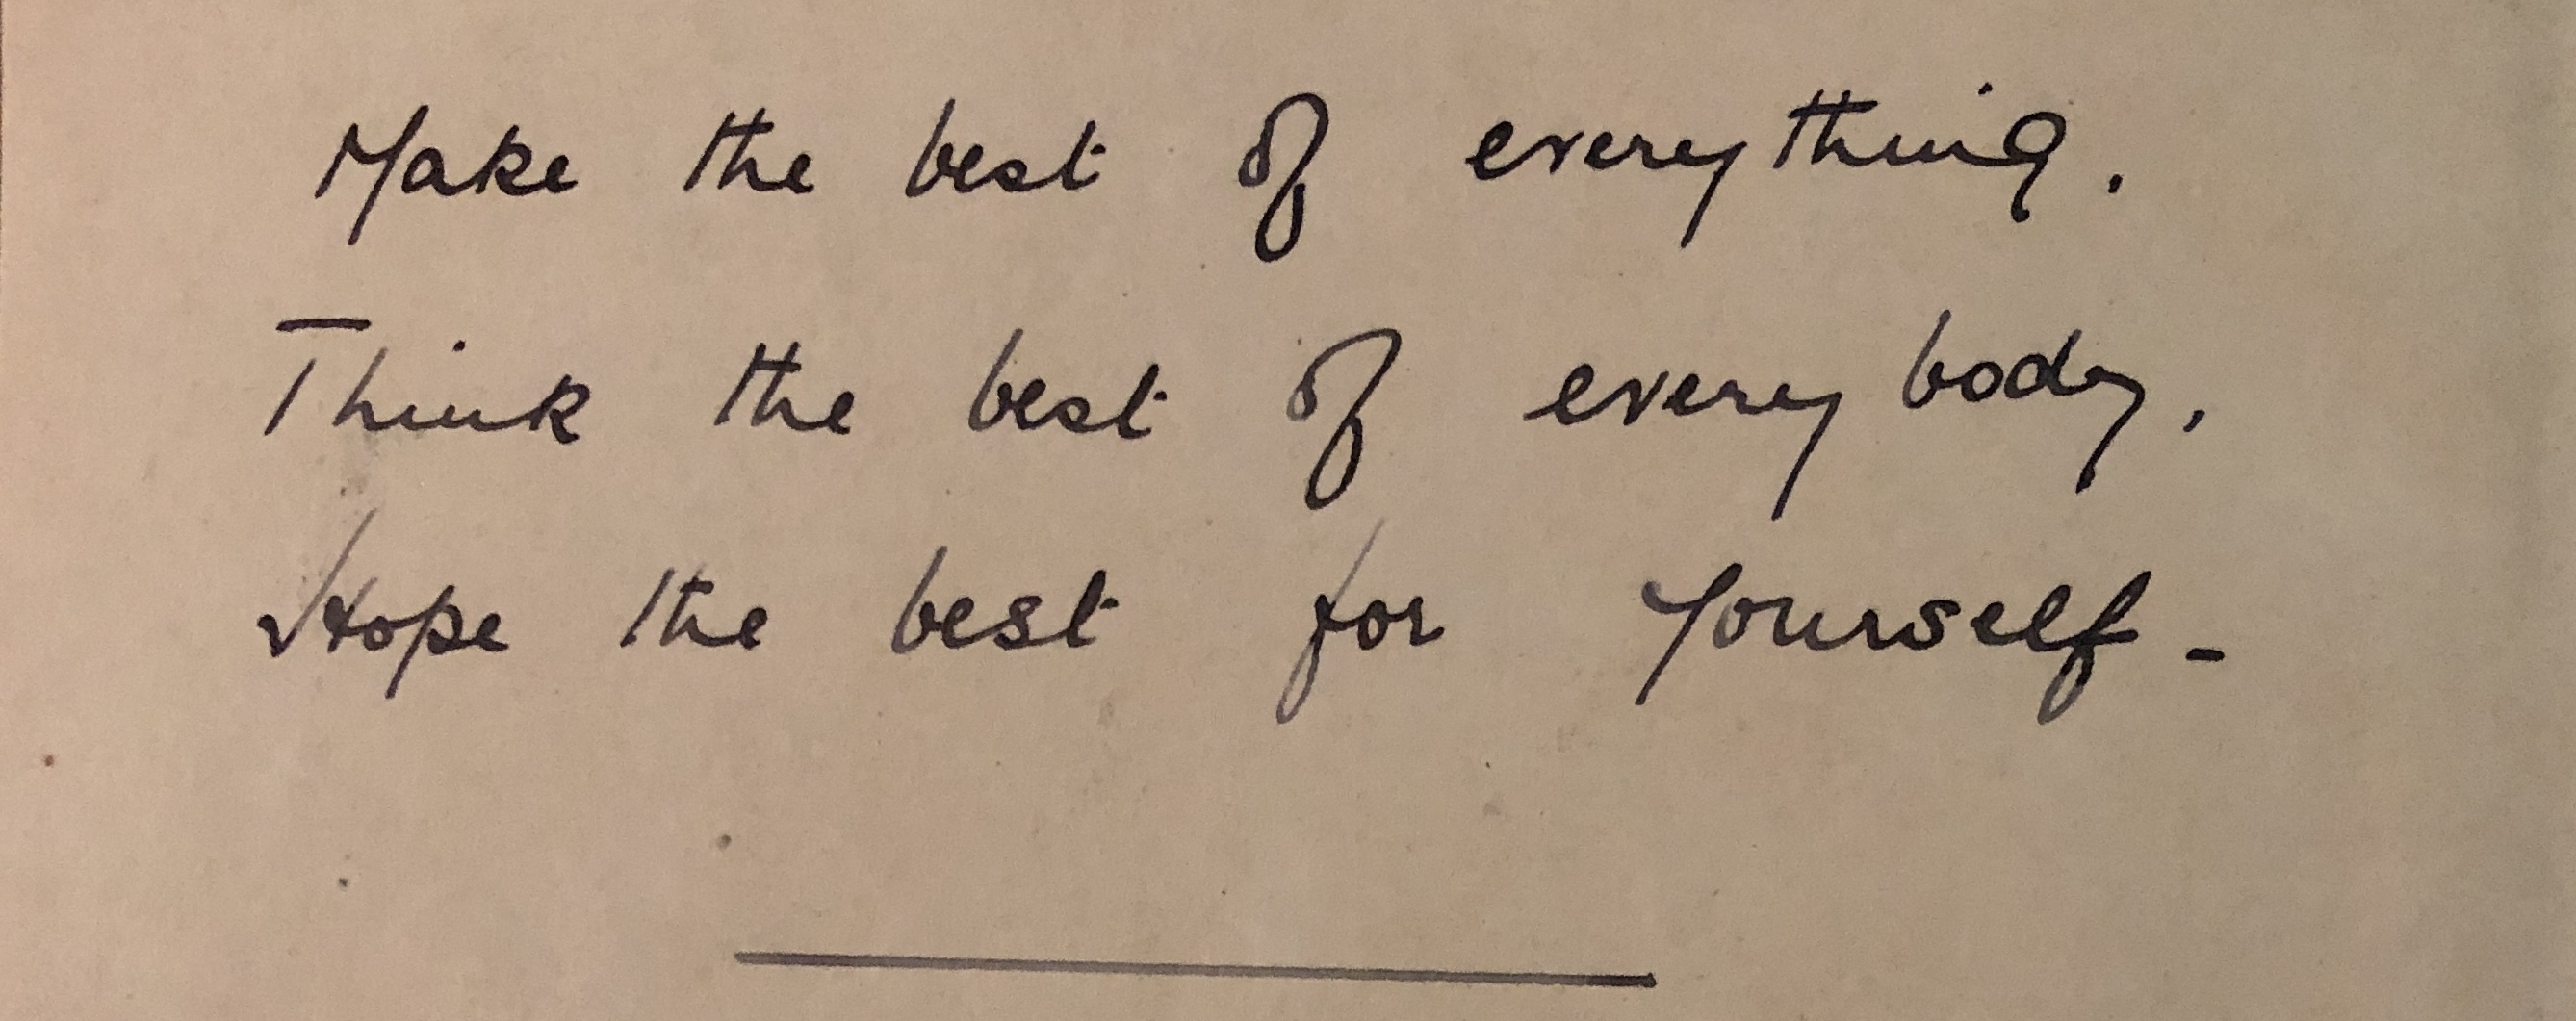 Make the best of everything.
Think the best of everybody,
Hope the best for Yourself -